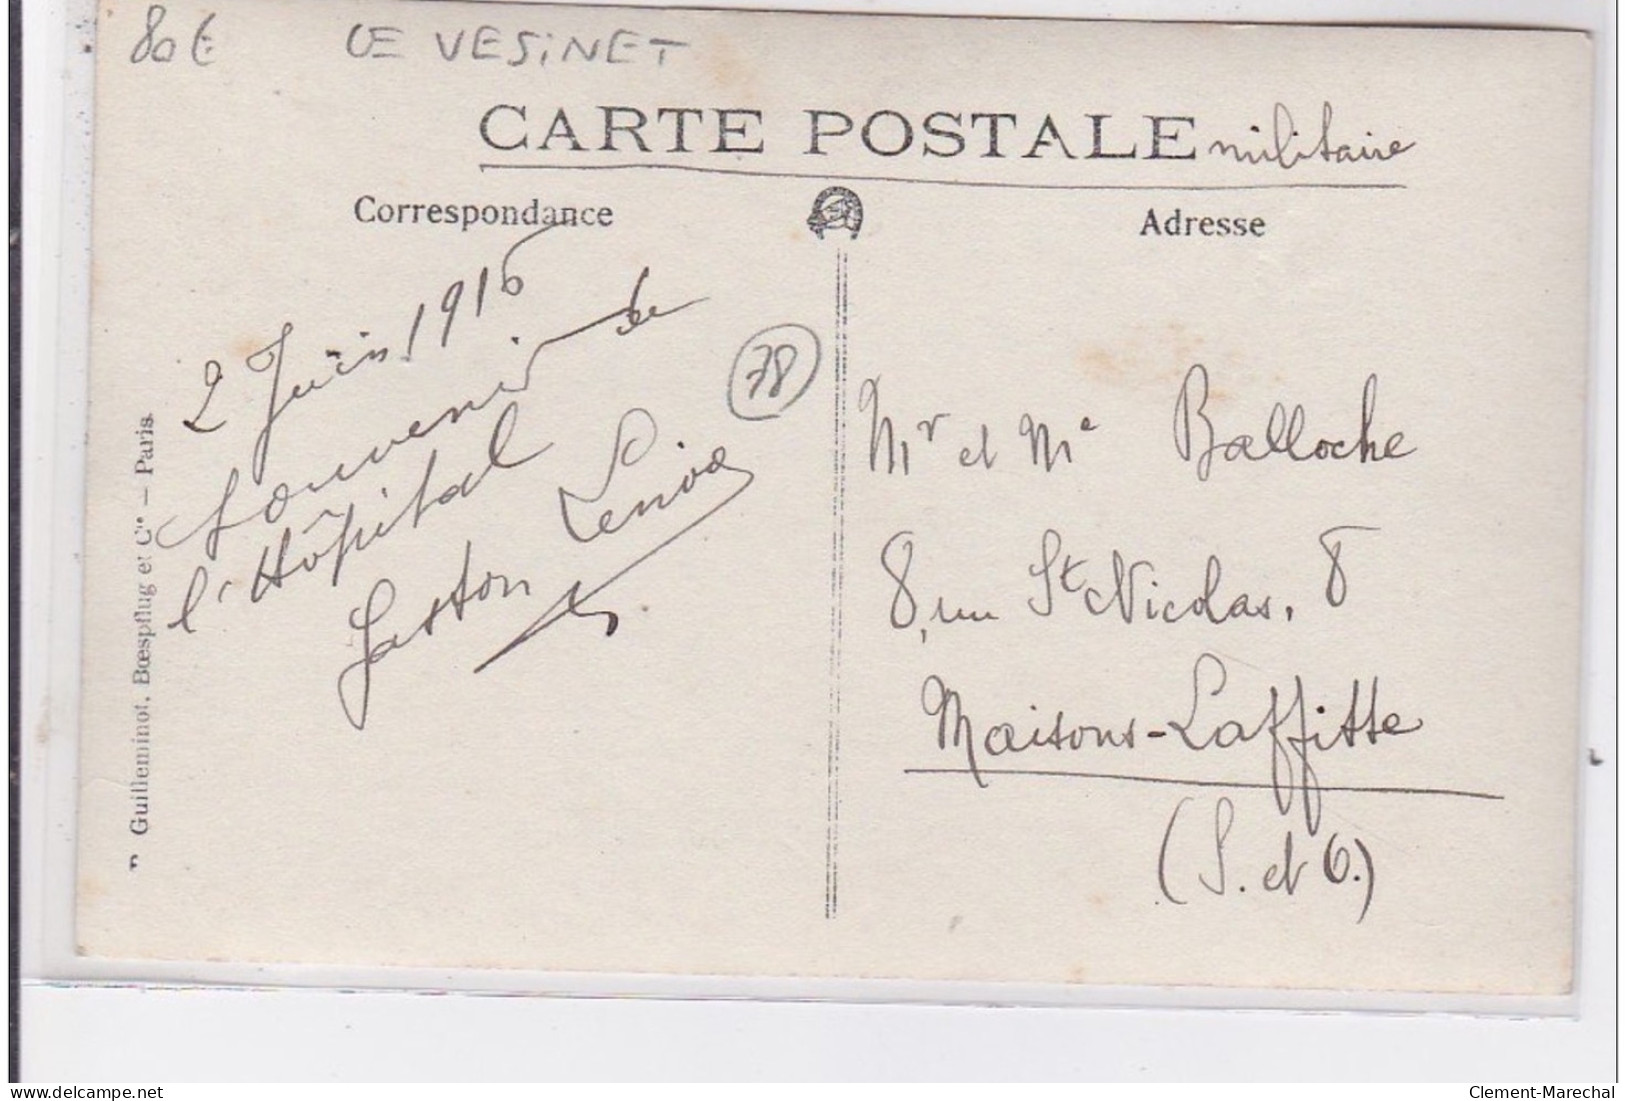 80€ LE VESINET
CARTE POSTALE militaire
Correspondance
Adresse
2 Juin 1916
Souvenir de
l'Hôpital
Gaston
78
Mr et Me Balloche
8, rue St Nicolas, 8
Maisons-Laffitte
(S. et O.)
Guilleminot, Bœspflug et Cie – Paris
www.delcampe.net
Clement-Marechal